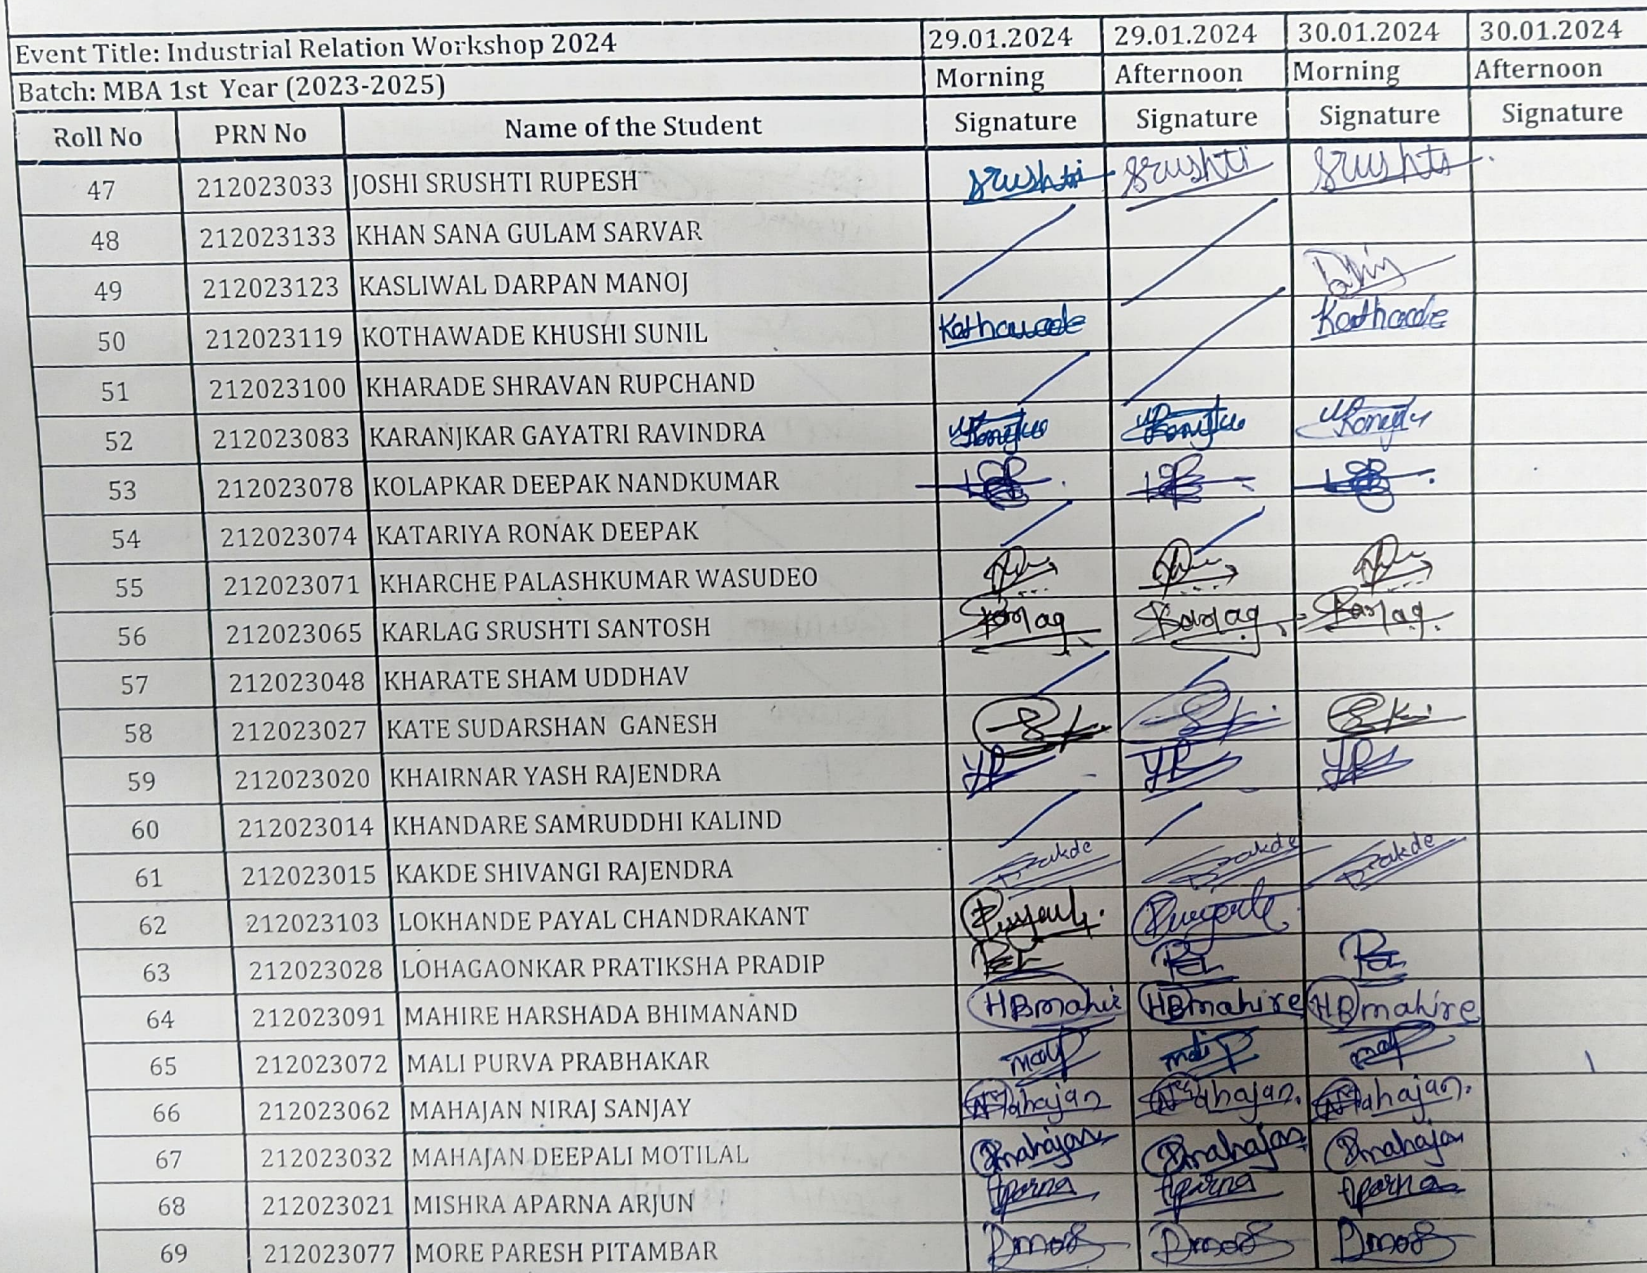 Event Title: Industrial Relation Workshop 2024 29.01.2024 29.01.2024 30.01.2024 30.01.2024
Batch: MBA 1st Year (2023-2025) Morning Afternoon Morning Afternoon
Roll No PRN No Name of the Student Signature Signature Signature Signature
47 212023033 JOSHI SRUSHTI RUPESH Srushti Srushti Srushti
48 212023133 KHAN SANA GULAM SARVAR
49 212023123 KASLIWAL DARPAN MANOJ
50 212023119 KOTHAWADE KHUSHI SUNIL Kothawade
51 212023100 KHARADE SHRAVAN RUPCHAND
52 212023083 KARANJKAR GAYATRI RAVINDRA
53 212023078 KOLAPKAR DEEPAK NANDKUMAR
54 212023074 KATARIYA RONAK DEEPAK
55 212023071 KHARCHE PALASHKUMAR WASUDEO
56 212023065 KARLAG SRUSHTI SANTOSH
57 212023048 KHARATE SHAM UDDHAV
58 212023027 KATE SUDARSHAN GANESH
59 212023020 KHAIRNAR YASH RAJENDRA
60 212023014 KHANDARE SAMRUDDHI KALIND
61 212023015 KAKDE SHIVANGI RAJENDRA
62 212023103 LOKHANDE PAYAL CHANDRAKANT
63 212023028 LOHAGAONKAR PRATIKSHA PRADIP
64 212023091 MAHIRE HARSHADA BHIMANAND HBmahire HBmahire HBmahire
65 212023072 MALI PURVA PRABHAKAR
66 212023062 MAHAJAN NIRAJ SANJAY
67 212023032 MAHAJAN DEEPALI MOTILAL Dmahajan Dmahajan Dmahajan
68 212023021 MISHRA APARNA ARJUN Aparna Aparna Aparna
69 212023077 MORE PARESH PITAMBAR